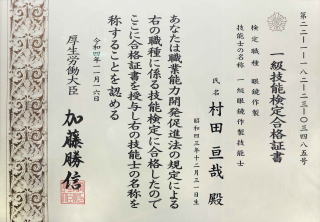 第二二-一-一八二-二三-〇三四八五号
一級技能検定合格証書
検定職種 眼鏡作製
技能士の名称 一級眼鏡作製技能士
氏名 村田亘哉殿
昭和四三年十二月三一日生
あなたは職業能力開発促進法の規定による
右の職種に係る技能検定に合格したので
ここに合格証書を授与し右の技能士の名称を
称することを認める
令和四年一一月一六日
厚生労働大臣 加藤勝信